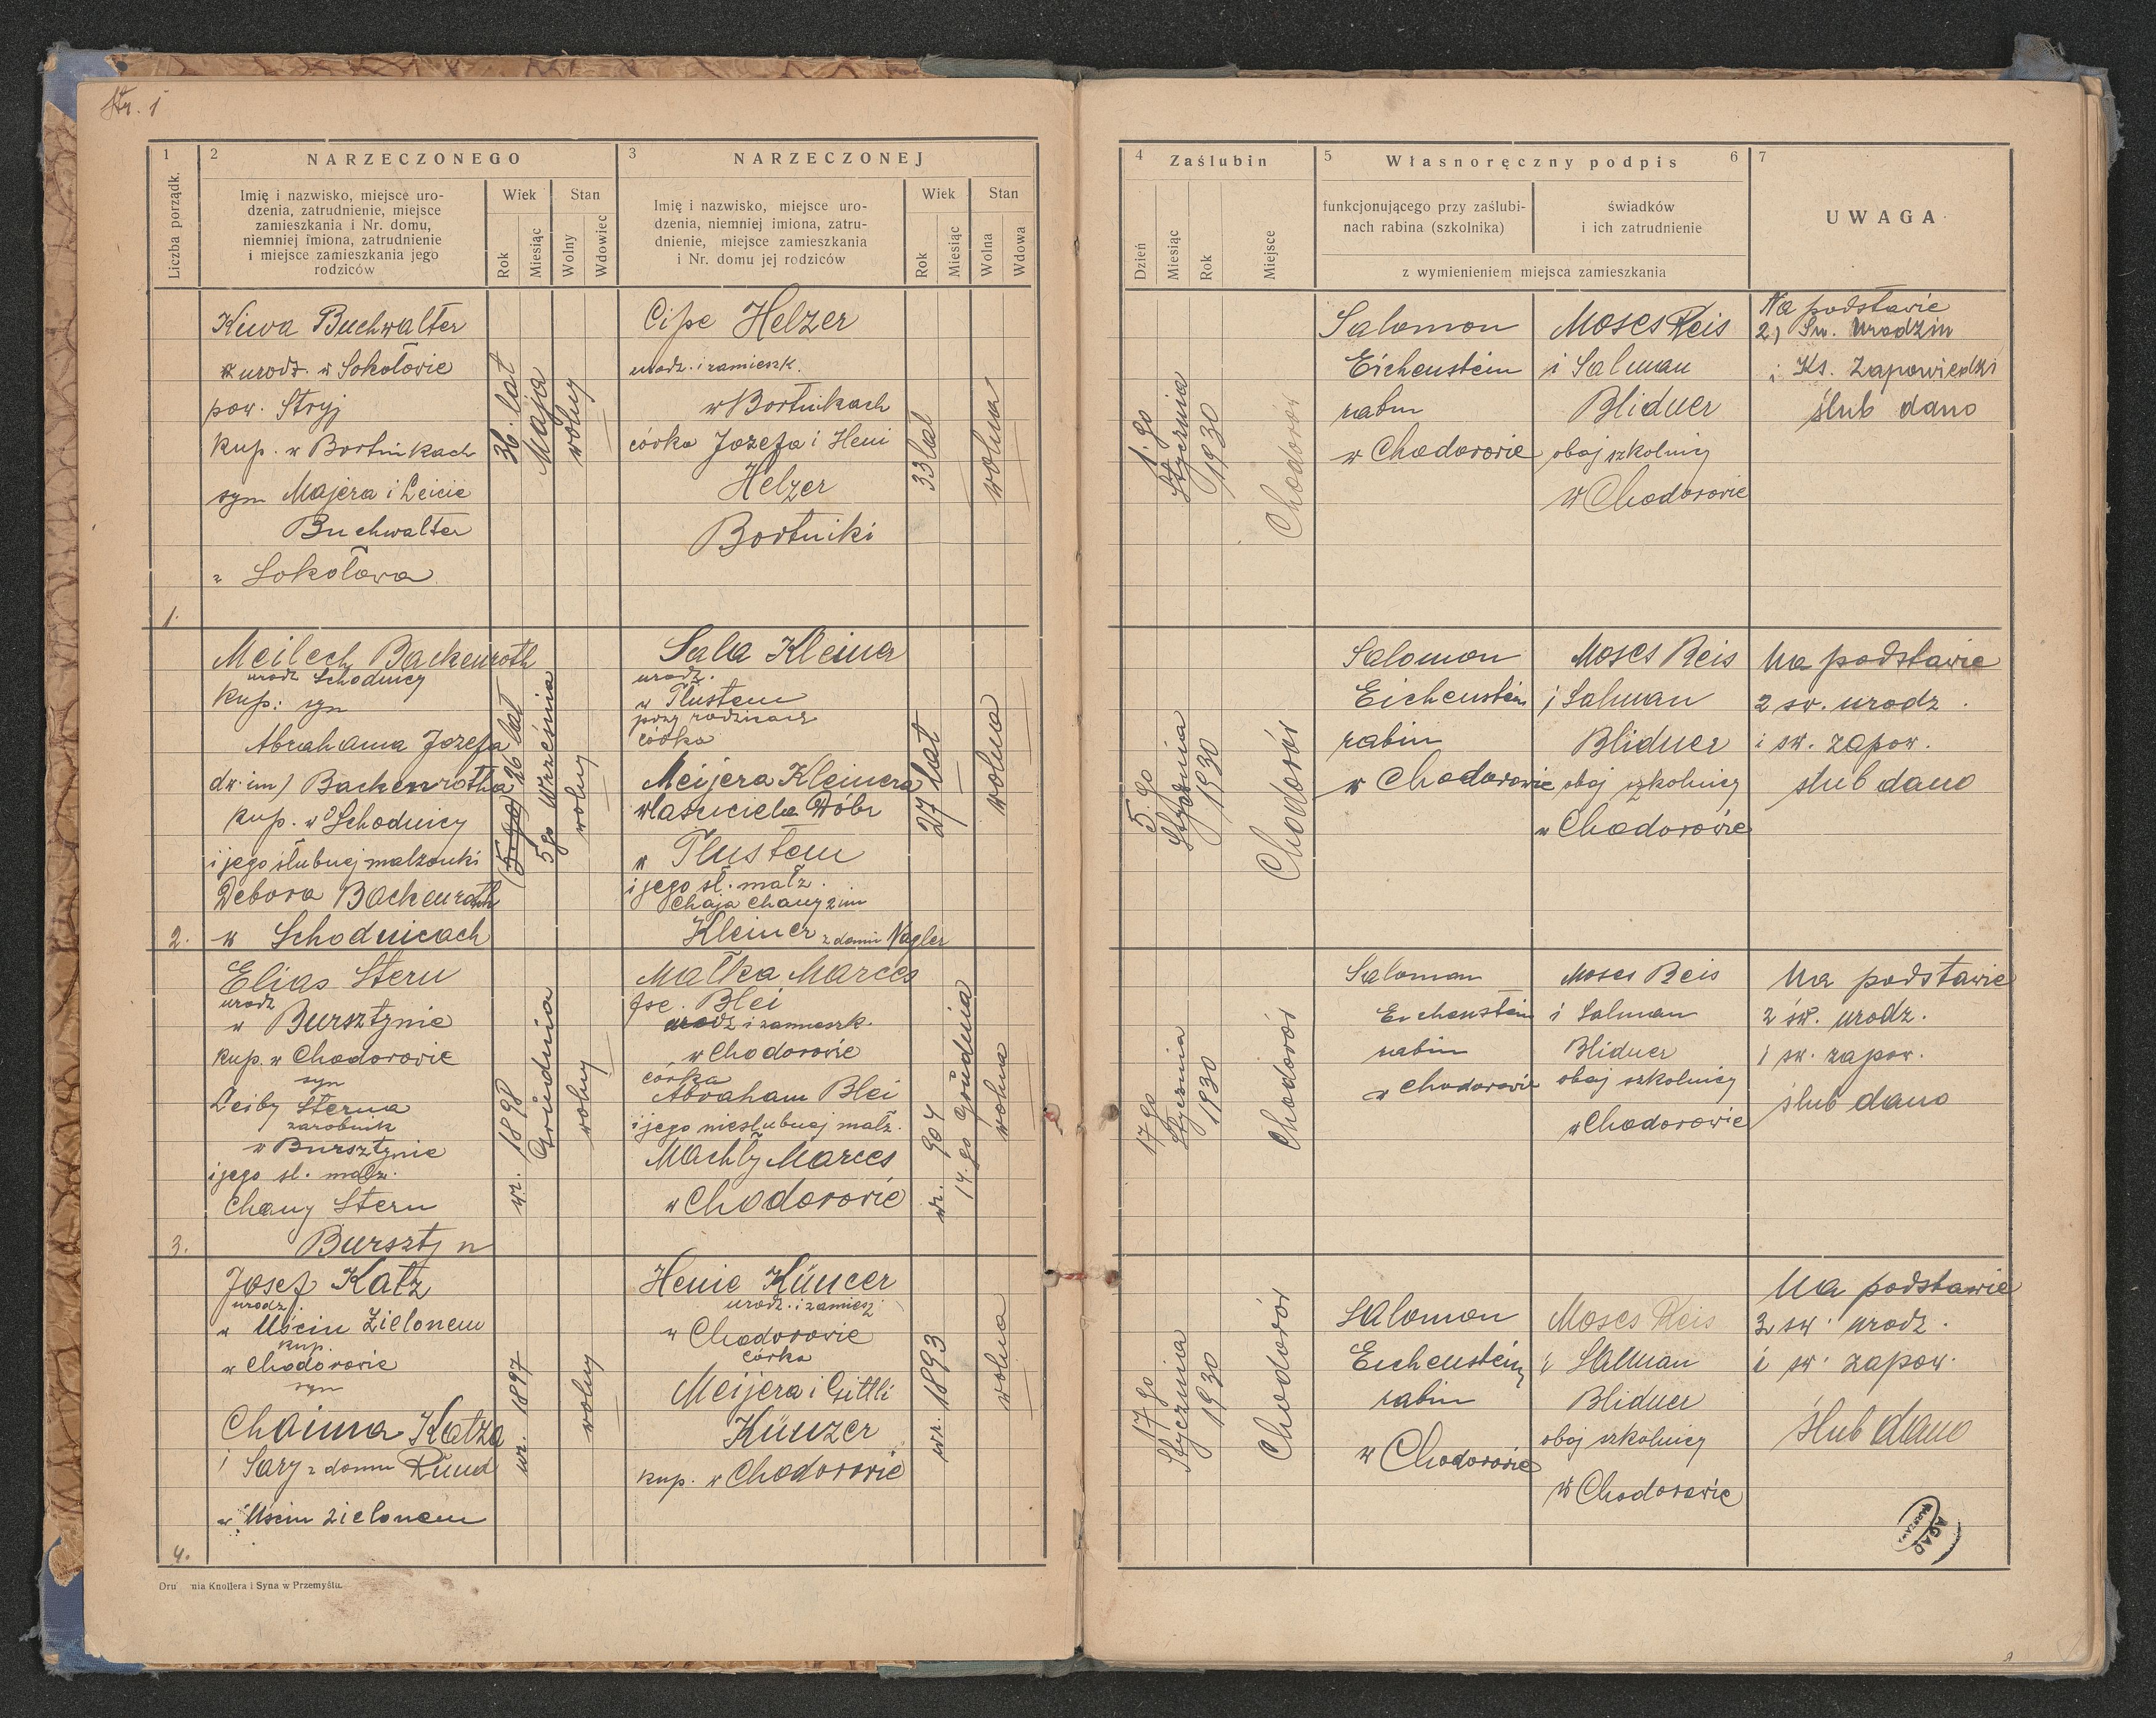 Str. 1
1
2 NARZECZONEGO
Imię i nazwisko, miejsce uro-
dzenia, zatrudnienie, miejsce
zamieszkania i Nr. domu,
niemniej imiona, zatrudnienie
i miejsce zamieszkania jego
rodziców
Liczba porządk.
Wiek
Stan
Rok
Miesiąc
Wolny
Wdowiec
3 NARZECZONEJ
Imię i nazwisko, miejsce uro-
dzenia, niemniej imiona, zatru-
dnienie, miejsce zamieszkania
i Nr. domu jej rodziców
Wiek
Stan
Rok
Miesiąc
Wolna
Wdowa
4 Zaślubin
Dzień
Miesiąc
Rok
Miejsce
5 Własnoręczny podpis 6
funkcjonującego przy zaślubi-
nach rabina (szkolnika)
świadków
i ich zatrudnienie
z wymienieniem miejsca zamieszkania
7
UWAGA
1.
Kiwa Buchwalter
urodz. w Sokołowie
pow. Stryj
kup. w Bortnikach
syn Majera i Leicie
Buchwalter
z Sokołowa
36. lat
Maja
wolny
Cipe Helzer
urodz. i zamieszk.
w Bortnikach
córka Jozefa i Heni
Helzer
Bortniki
33 lat
wolna
1. go
Stycznia
1930
Chodorow
Salomon
Eichenstein
rabin
w Chodorowie
Moses Reis
i Salman
Bliduer
obaj szkolnicy
w Chodorowie
Na podstawie
2) Św. Urodzin
i Ks. Zapowiedzi
ślub dano
2.
Meilech Backenroth
urodz Schodnicy
kup: syn
Abrahama Jozefa
dw. im) Backenrotha
kup. w Schodnicy
i jego ślubnej malzonki
Debora Backenroth
w Schodnicach
(5 go) 26 lat
5 go Września
wolny
Sala Kleiner
urodz.
w Tlustem
przy rodzicach
córka
Meijera Kleinera
wlasciciela Dóbr
w Tlustem
i jego śl. małz.
Chaja Chany 2 im
Kleiner z domu Nagler
27 lat
wolna
5. go
Stycznia
1930
Chodorów
Salomon
Eichenstein
rabin
w Chodorowie
Moses Reis
i Salman
Bliduer
obaj szkolnicy
w Chodorowie
Na podstawie
2 sw. urodz.
i sw. zapow.
slub dano
3.
Elias Stern
urodz
w Bursztynie
kup. w Chodorowie
syn
Leiby Sterna
zarobnik
w Bursztynie
i jego sl. malz.
Chany Stern
Bursztyn
wr. 1898
Grudnia
wolny
Małka Marces
fse. Blei
urodz i zamieszk.
w Chodorowie
córka
Abraham Blei
i jego nieslubnej malz.
Machly Marces
w Chodorowie
wr. 904
14. go Grudnia
wolna
17 go
Stycznia
1930
Chodorów
Salomon
Eichenstein
rabin
w Chodorowie
Moses Reis
i Salman
Bliduer
obaj szkolnicy
w Chodorowie
Na podstawie
2 św. urodz.
i sw. zapow.
ślub dano
4.
Josef Katz
urodz.
w Uściu Zielonem
kup.
w Chodorowie
syn
Chaima Katza
i Sary z domu Rund
w Usciu zielonem
wr. 1897
wolny
Henie Küncer
urodz. i zamiesz
w Chodorowie
córka
Meijera i Gittli
Künzer
kup. w Chodorowie
wr. 1893
wolna
17 go
Stycznia
1930
Chodorów
Salomon
Eichenstein
rabin
w Chodorowie
Moses Reis
i Salman
Bliduer
obaj szkolnicy
w Chodorowie
Na podstawie
2 sw. urodz.
i sw. zapow.
ślub dano
AGAD
WARSZAWA
Dru nia Knollera i Syna w Przemyślu.